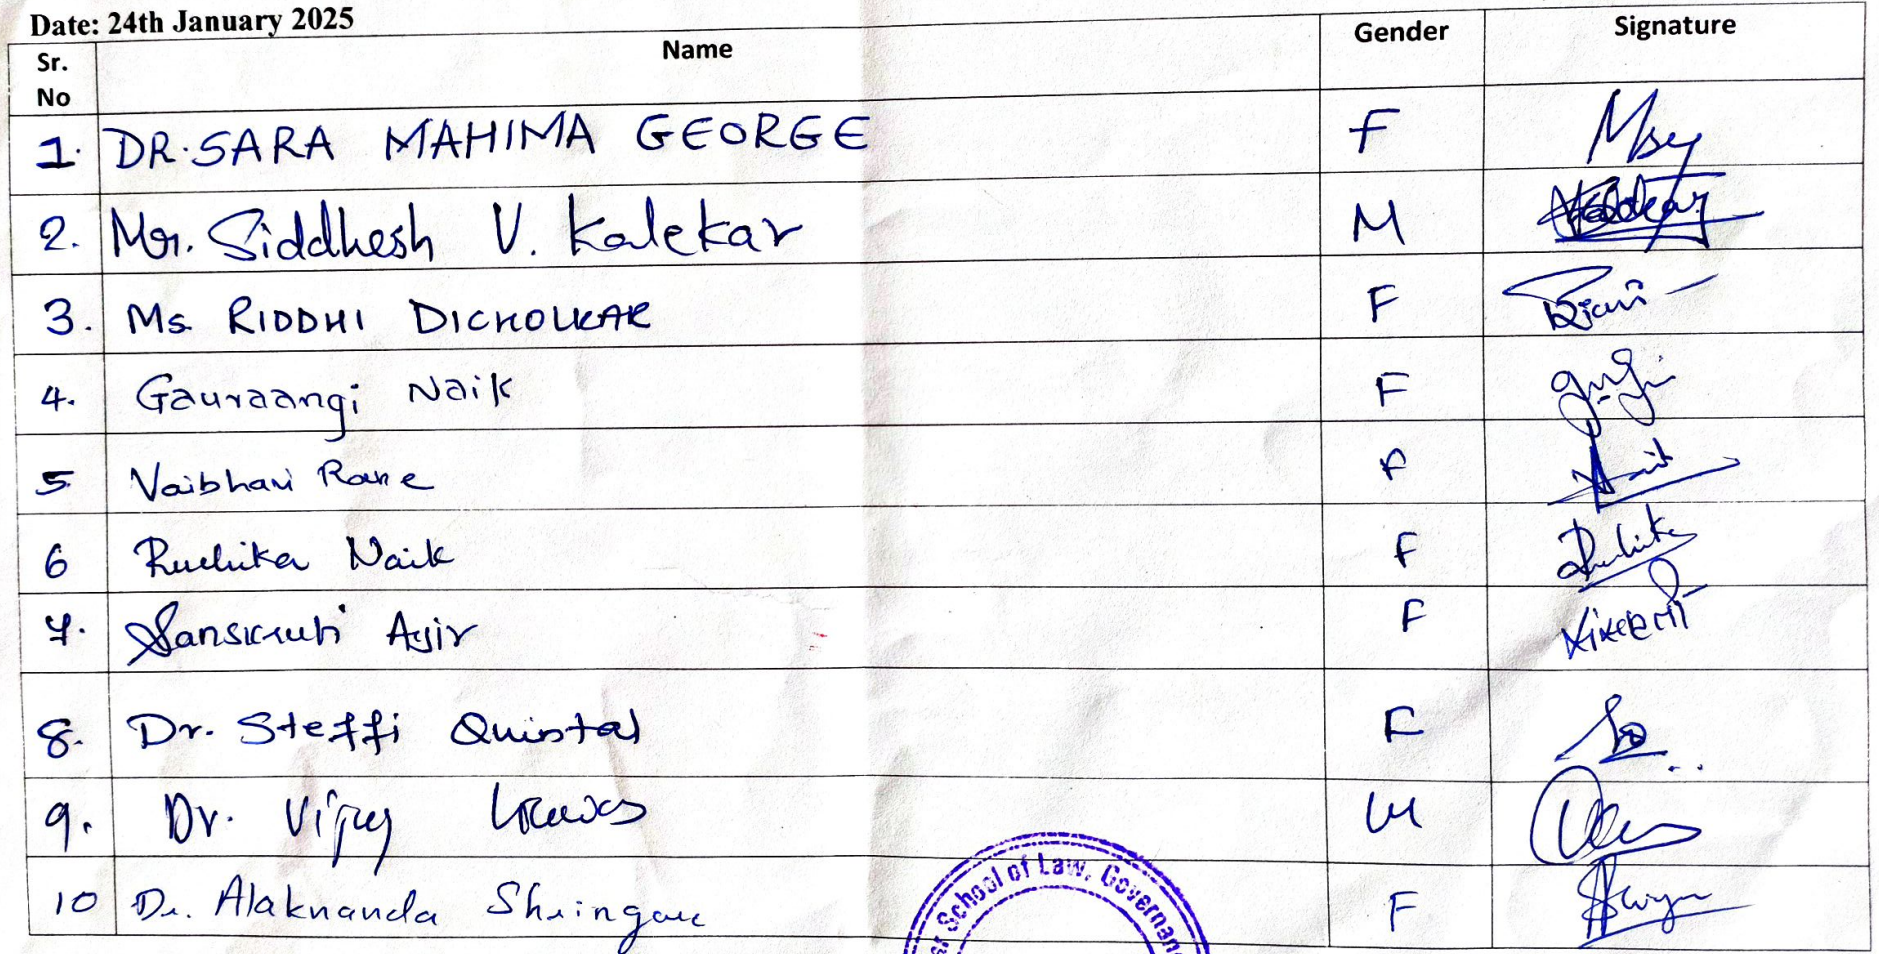 Date: 24th January 2025
Sr. No Name Gender Signature
1. DR. SARA MAHIMA GEORGE F
2. Mr. Siddhesh V. Kalekar M
3. Ms. RIDDHI DICHOLKAR F
4. Gauraangi Naik F
5 Vaibhavi Rane F
6 Ruchika Naik F Ruchika
7. Sanskruti Asir F
8. Dr. Steffi Quintal F
9. Dr. Vijay M
10 Dr. Alaknanda Shringare F
School of Law, Governan